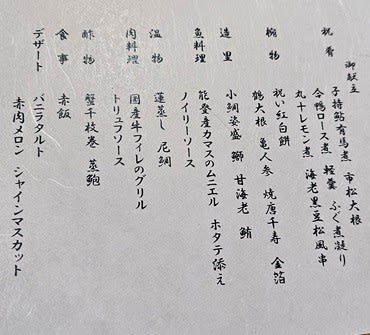 御献立
祝肴 子持鮎有馬煮 市松大根
合鴨ロース煮 軽羹 ふぐ煮凝り
丸十レモン煮 海老黒豆松風串
椀物 祝い紅白餅
鶴大根 亀人参 焼唐千寿 金箔
造里 小鯛姿盛 鰤 甘海老 鮪
魚料理 能登産カマスのムニエル ホタテ添え
ノイリーソース
温物 蓮蒸し 尼鯛
肉料理 国産牛フィレのグリル
トリュフソース
酢物 蟹千枚巻 蒸鮑
食事 赤飯
デザート バニラタルト
赤肉メロン シャインマスカット